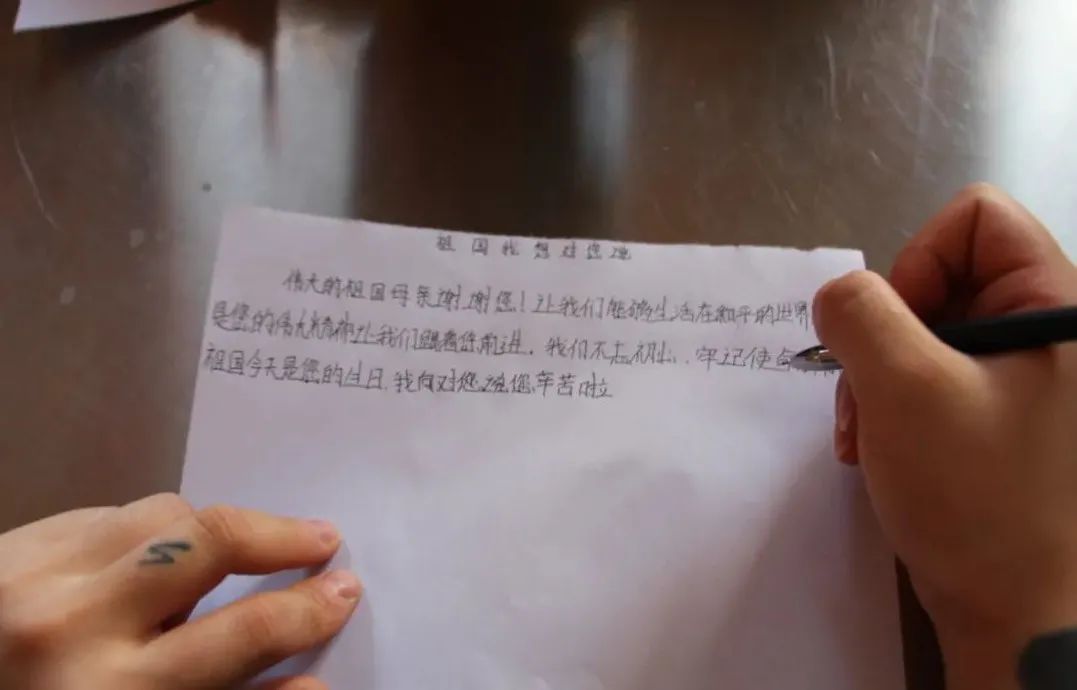 祖国我想对您说
伟大的祖国母亲谢谢您！让我们能够生活在和平的世界
是您的伟大精神让我们跟着您前进，我们不忘初心，牢记使命
祖国今天是您的生日，我向对您说您辛苦啦